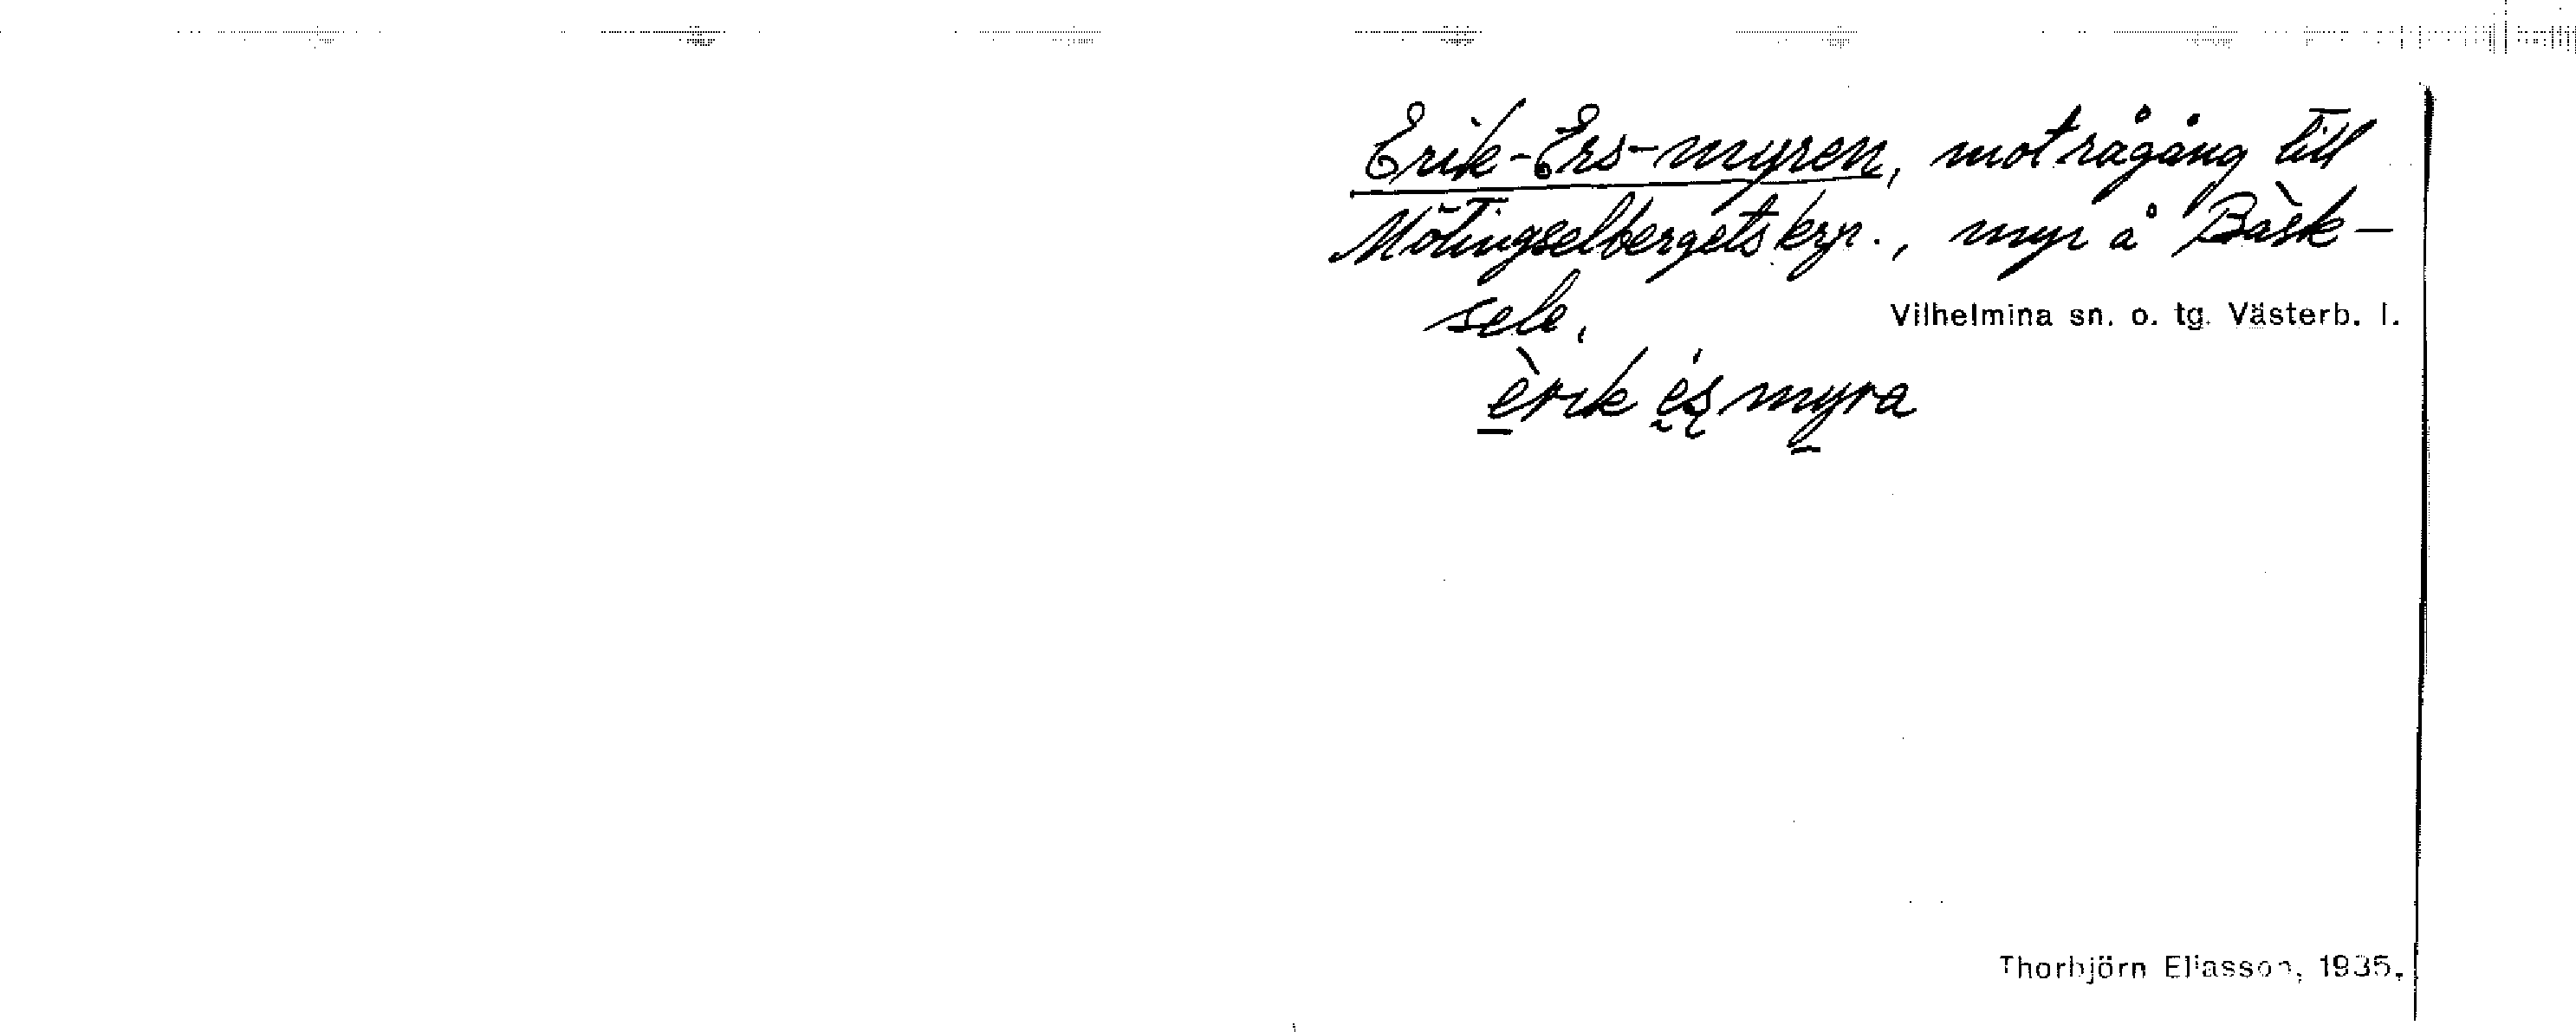 Erik-Ers-myren, mot rågång till
Mötingselbergets krp., myr å Bäsk-
sele.
Vilhelmina sn. o. tg. Västerb. l.
èrik és myra
Thorbjörn Eliasson, 1935.